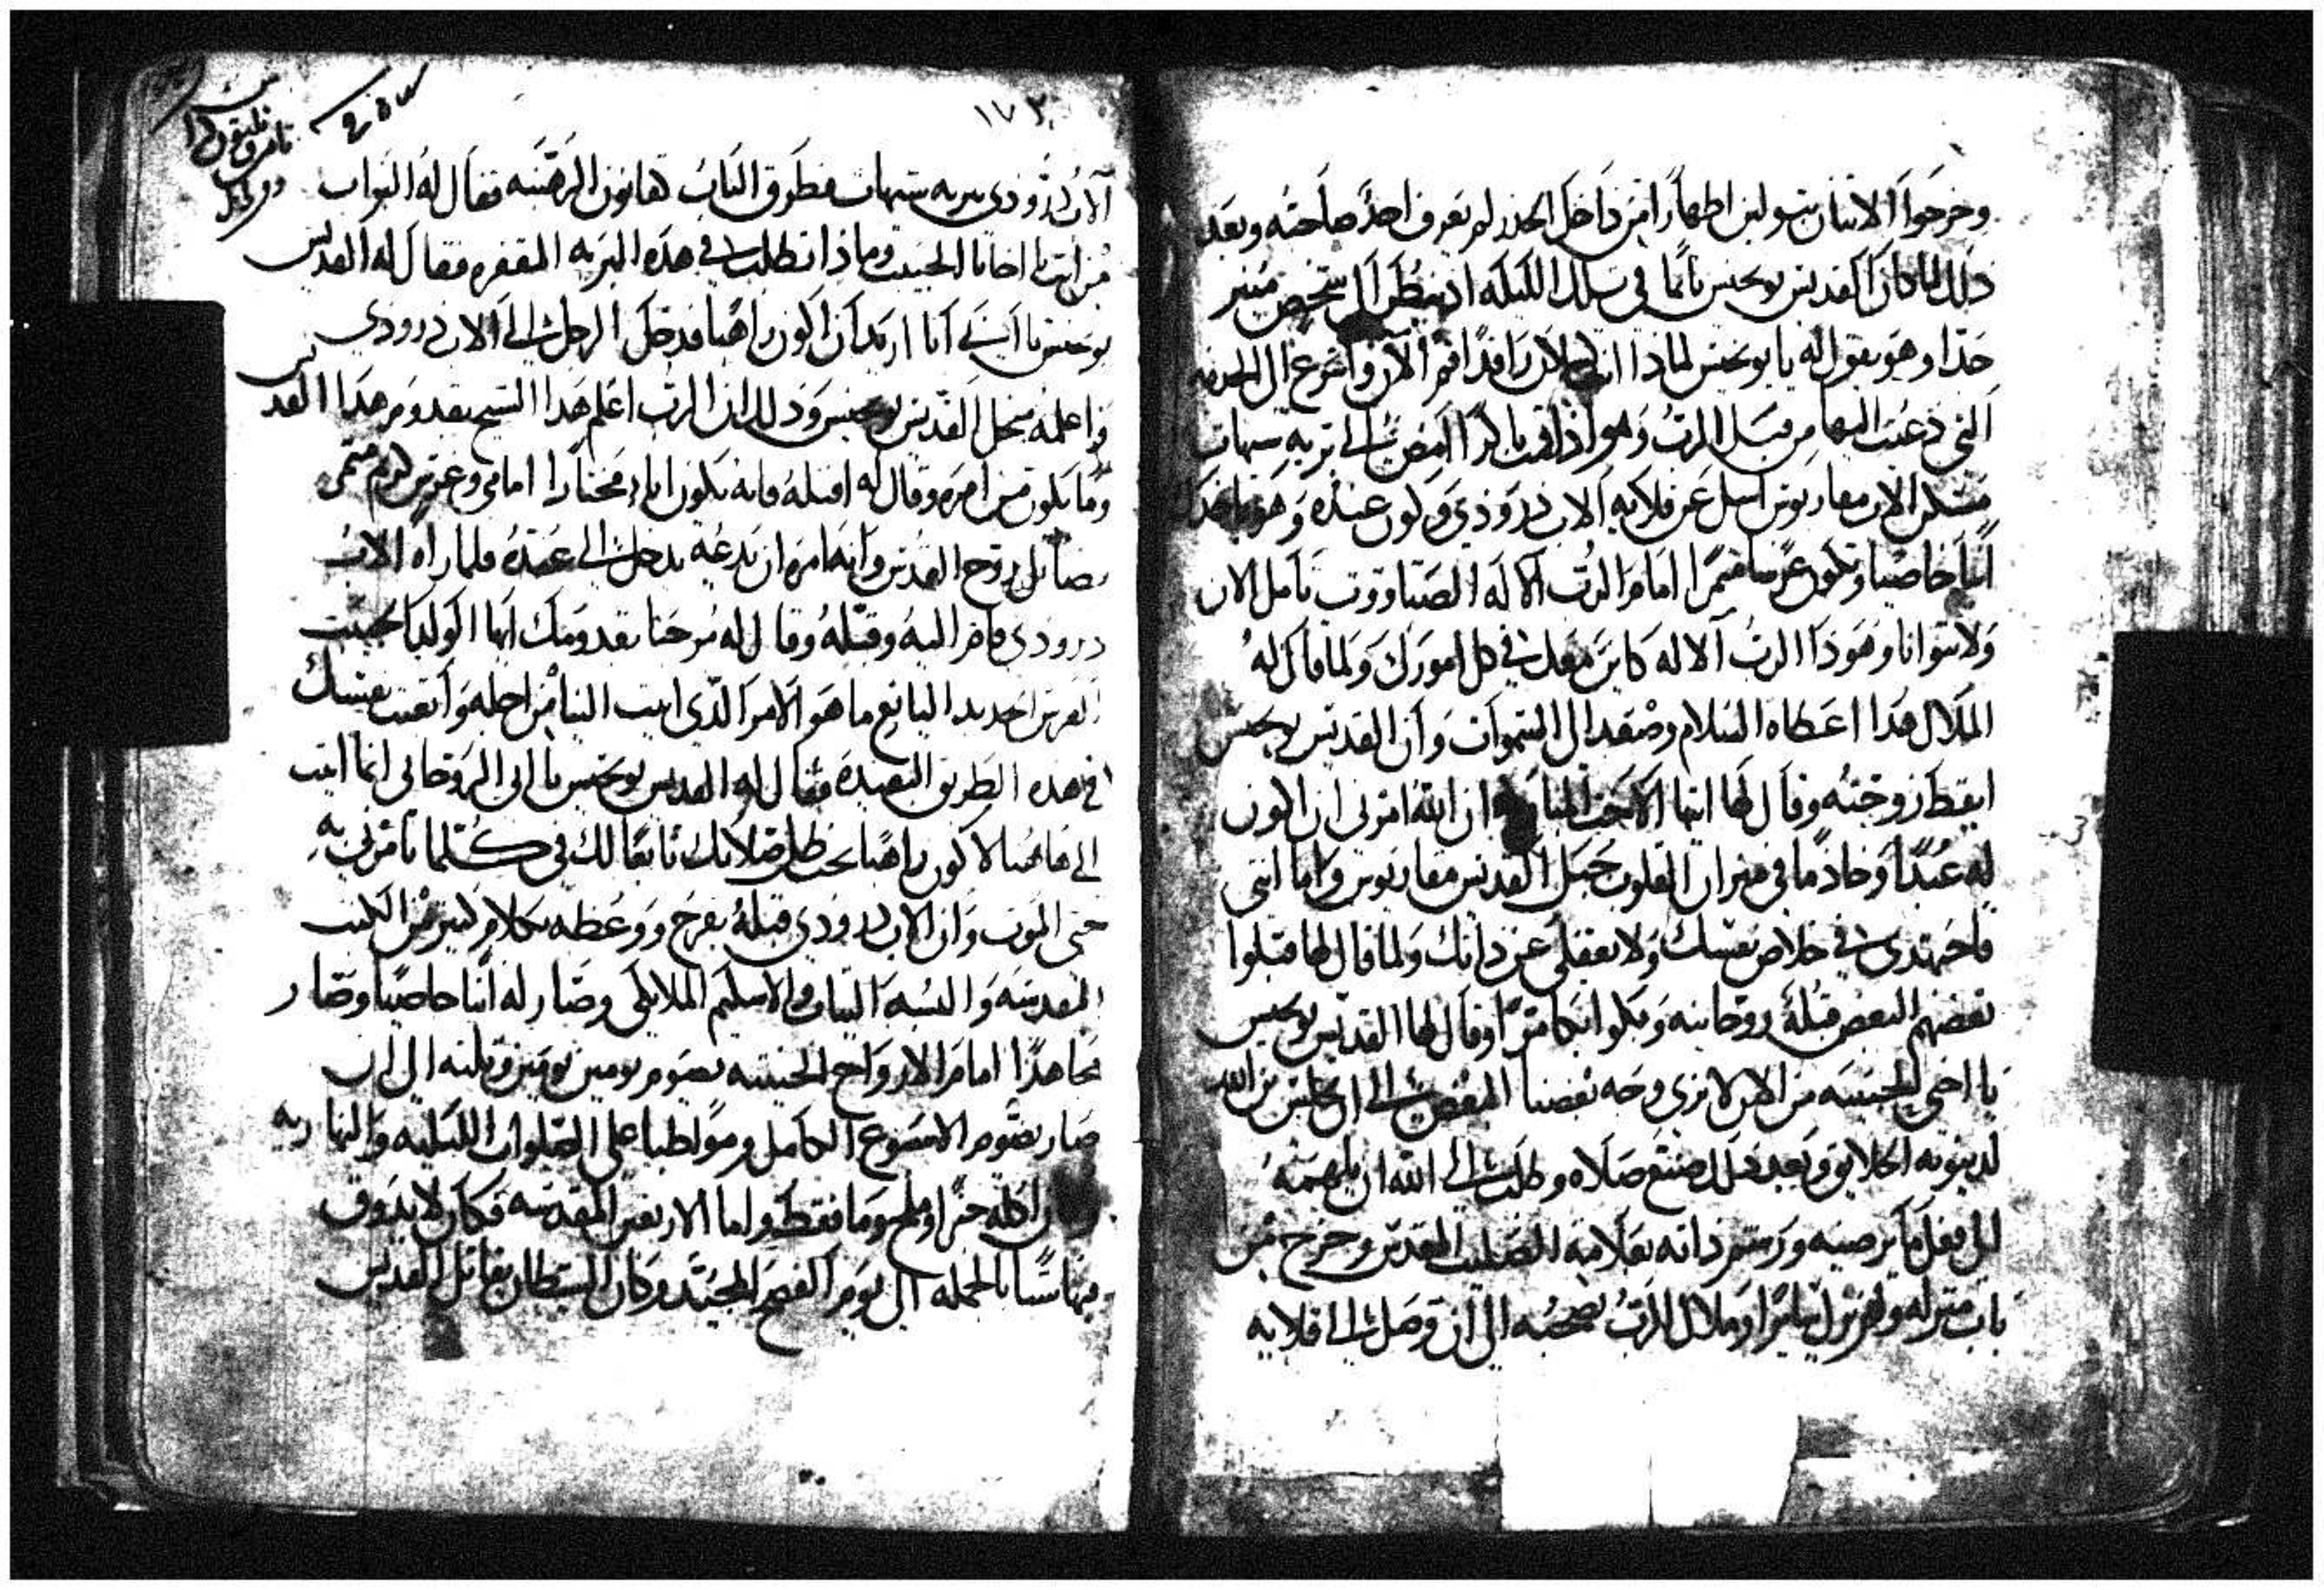 وخرجوا الاتنان بتولين اطهارا من داخل الخدر لم يعرف احد صاحبه وبعد
ذلك لما كان القديس يوحنس نايما في تلك الليله اد نظر الى شخص منير
جدا وهو يقول له يا يوحنس لماذا انت الان راقدا قم الان واسرع الى الخدمه
التي دعيت اليها من قبل الرب وهو اذا قمت باكرا امض الى بريه شيهات
مسكن الاب مقاريوس اسل عن قلايه الاب درودي وكون عنده وهو ياخدك
ابنا خاصا وتكون غرسا متمرا امام الرب الاله الصباووت تامل الان
ولا تتوانا وهوذا الرب الاله كاين معك في كل امورك ولما قال له
الملاك هدا اعطاه السلام وصعد الى السموات وان القديس يوحنس
ايقظ زوجته وقال لها ايتها الاخت المباركه ان الله امرني ان اكون
له عبدا وخادما في ميزان القلوب جبل القديس مقاريوس واما انتي
فاجتهدي في خلاص نفسك ولا تغفلي عن ذاتك ولما قال لها قبلوا
بعضهم البعض قبله روحانيه وبكوا بكا مرا وقال لها القديس يوحنس
يا اختي الحبيبه من الان لا نرى وجه بعضنا البعض الى ان يجلس بن الله
لدينونه الخلايق وبعد ذلك صنع صلاه وطلب الى الله ان يلهمه
الى فعل ما يرضيه ورشم ذاته بعلامة الصليب المقدس وخرج من
باب منزله ولم يزل سايرا وملاك الرب بصحبته الى ان وصل الى قلايه
١٧٣
الاب درودي ببريه شيهات فطرق الباب كقانون الرهبنه فقال له البواب
من انت يا اخانا الحبيب وماذا تطلب في هذه البريه المقفره فقال له القديس
يوحنس يا ابي انا اريد ان اكون راهبا فدخل الرجل الى الاب درودي
واعلمه بمجي القديس يوحنس وذلك ان الرب اعلم هدا الشيخ بقدوم هدا القديس
وما يكون من امره وقال له اقبله فانه يكون انا مختارا امامي وغرس كرم متمر
بصايل روح القدس وانه امره ان يدعه يدخل الى عنده فلما راه الاب
درودي قام اليه وقبله وقال له مرحبا بقدومك ايها الولد الحبيب
الغرس الجديد اليانع ما هو الامر الذي اتيت الينا من اجله واتعبت نفسك
في هده الطريق البعيده فقال له القديس يوحنس يا ابي الروحاني انما اتيت
الى هاهنا لاكون راهبا تحت ظل صلاتك تابعا لك في كلما تامرني به
حتى الموت وان الاب درودي قبله بفرح ووعظه بكلام كثير من الكتب
المقدسه والبسه التياب والاسكيم الملايكي وصار له ابنا خاصا وصار
مجاهدا امام الارواح الخبيثه يصوم يومين يومين وتلته الى ان
صار يصوم الاسبوع الكامل ومواظبا على الصلوات الليليه والنهاريه
واكله خبزا وملح وما فقط واما الاربعين المقدسه فكان لا يذوق
فيها شيا بالجمله الى يوم الفصح المجيد وكان الشيطان يقاتل القديس